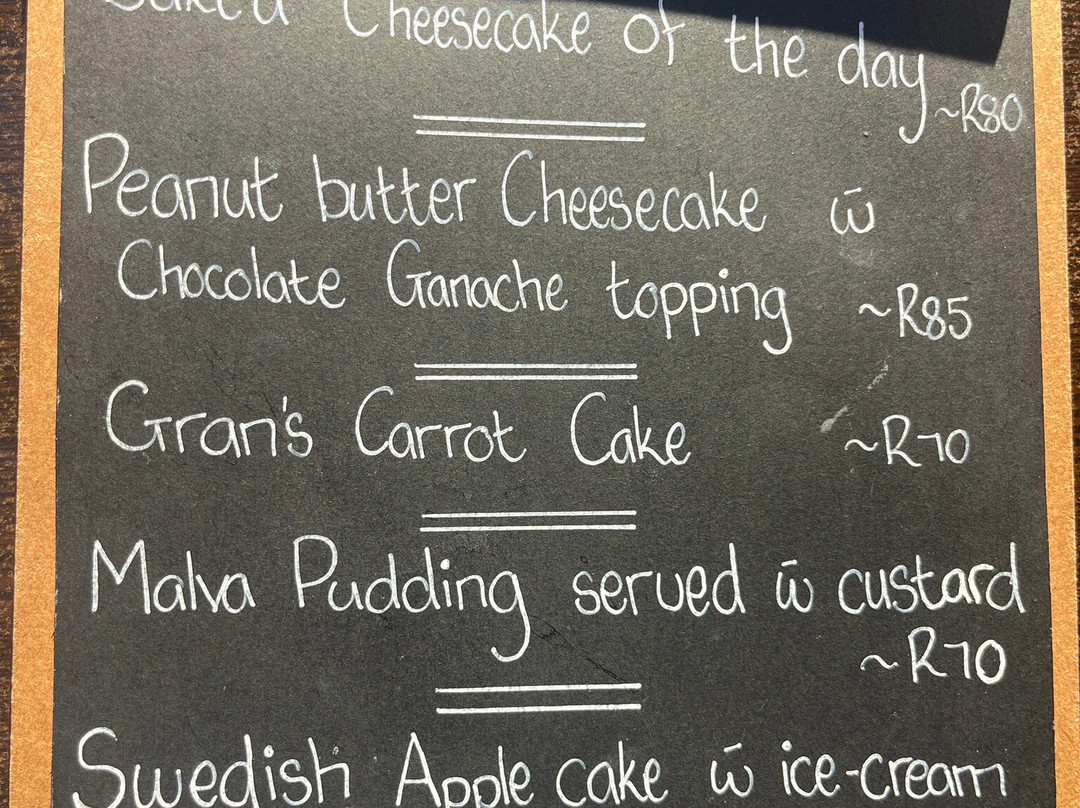 Baked Cheesecake of the day
~R80
Peanut butter Cheesecake w̄
Chocolate Ganache topping ~R85
Gran's Carrot Cake ~R70
Malva Pudding served w̄ custard
~R70
Swedish Apple cake w̄ ice-cream